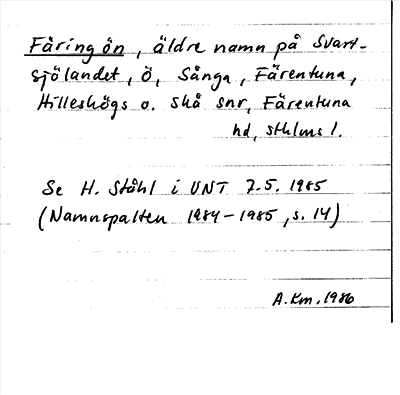 Färingön, äldre namn på Svart-
sjölandet, ö, Sånga, Färentuna,
Hilleshögs o. Skå snr, Färentuna
hd, Sthlms l.
Se H. Ståhl i UNT 7.5. 1985
(Namnspalten 1984-1985, s. 14)
A. Km. 1986